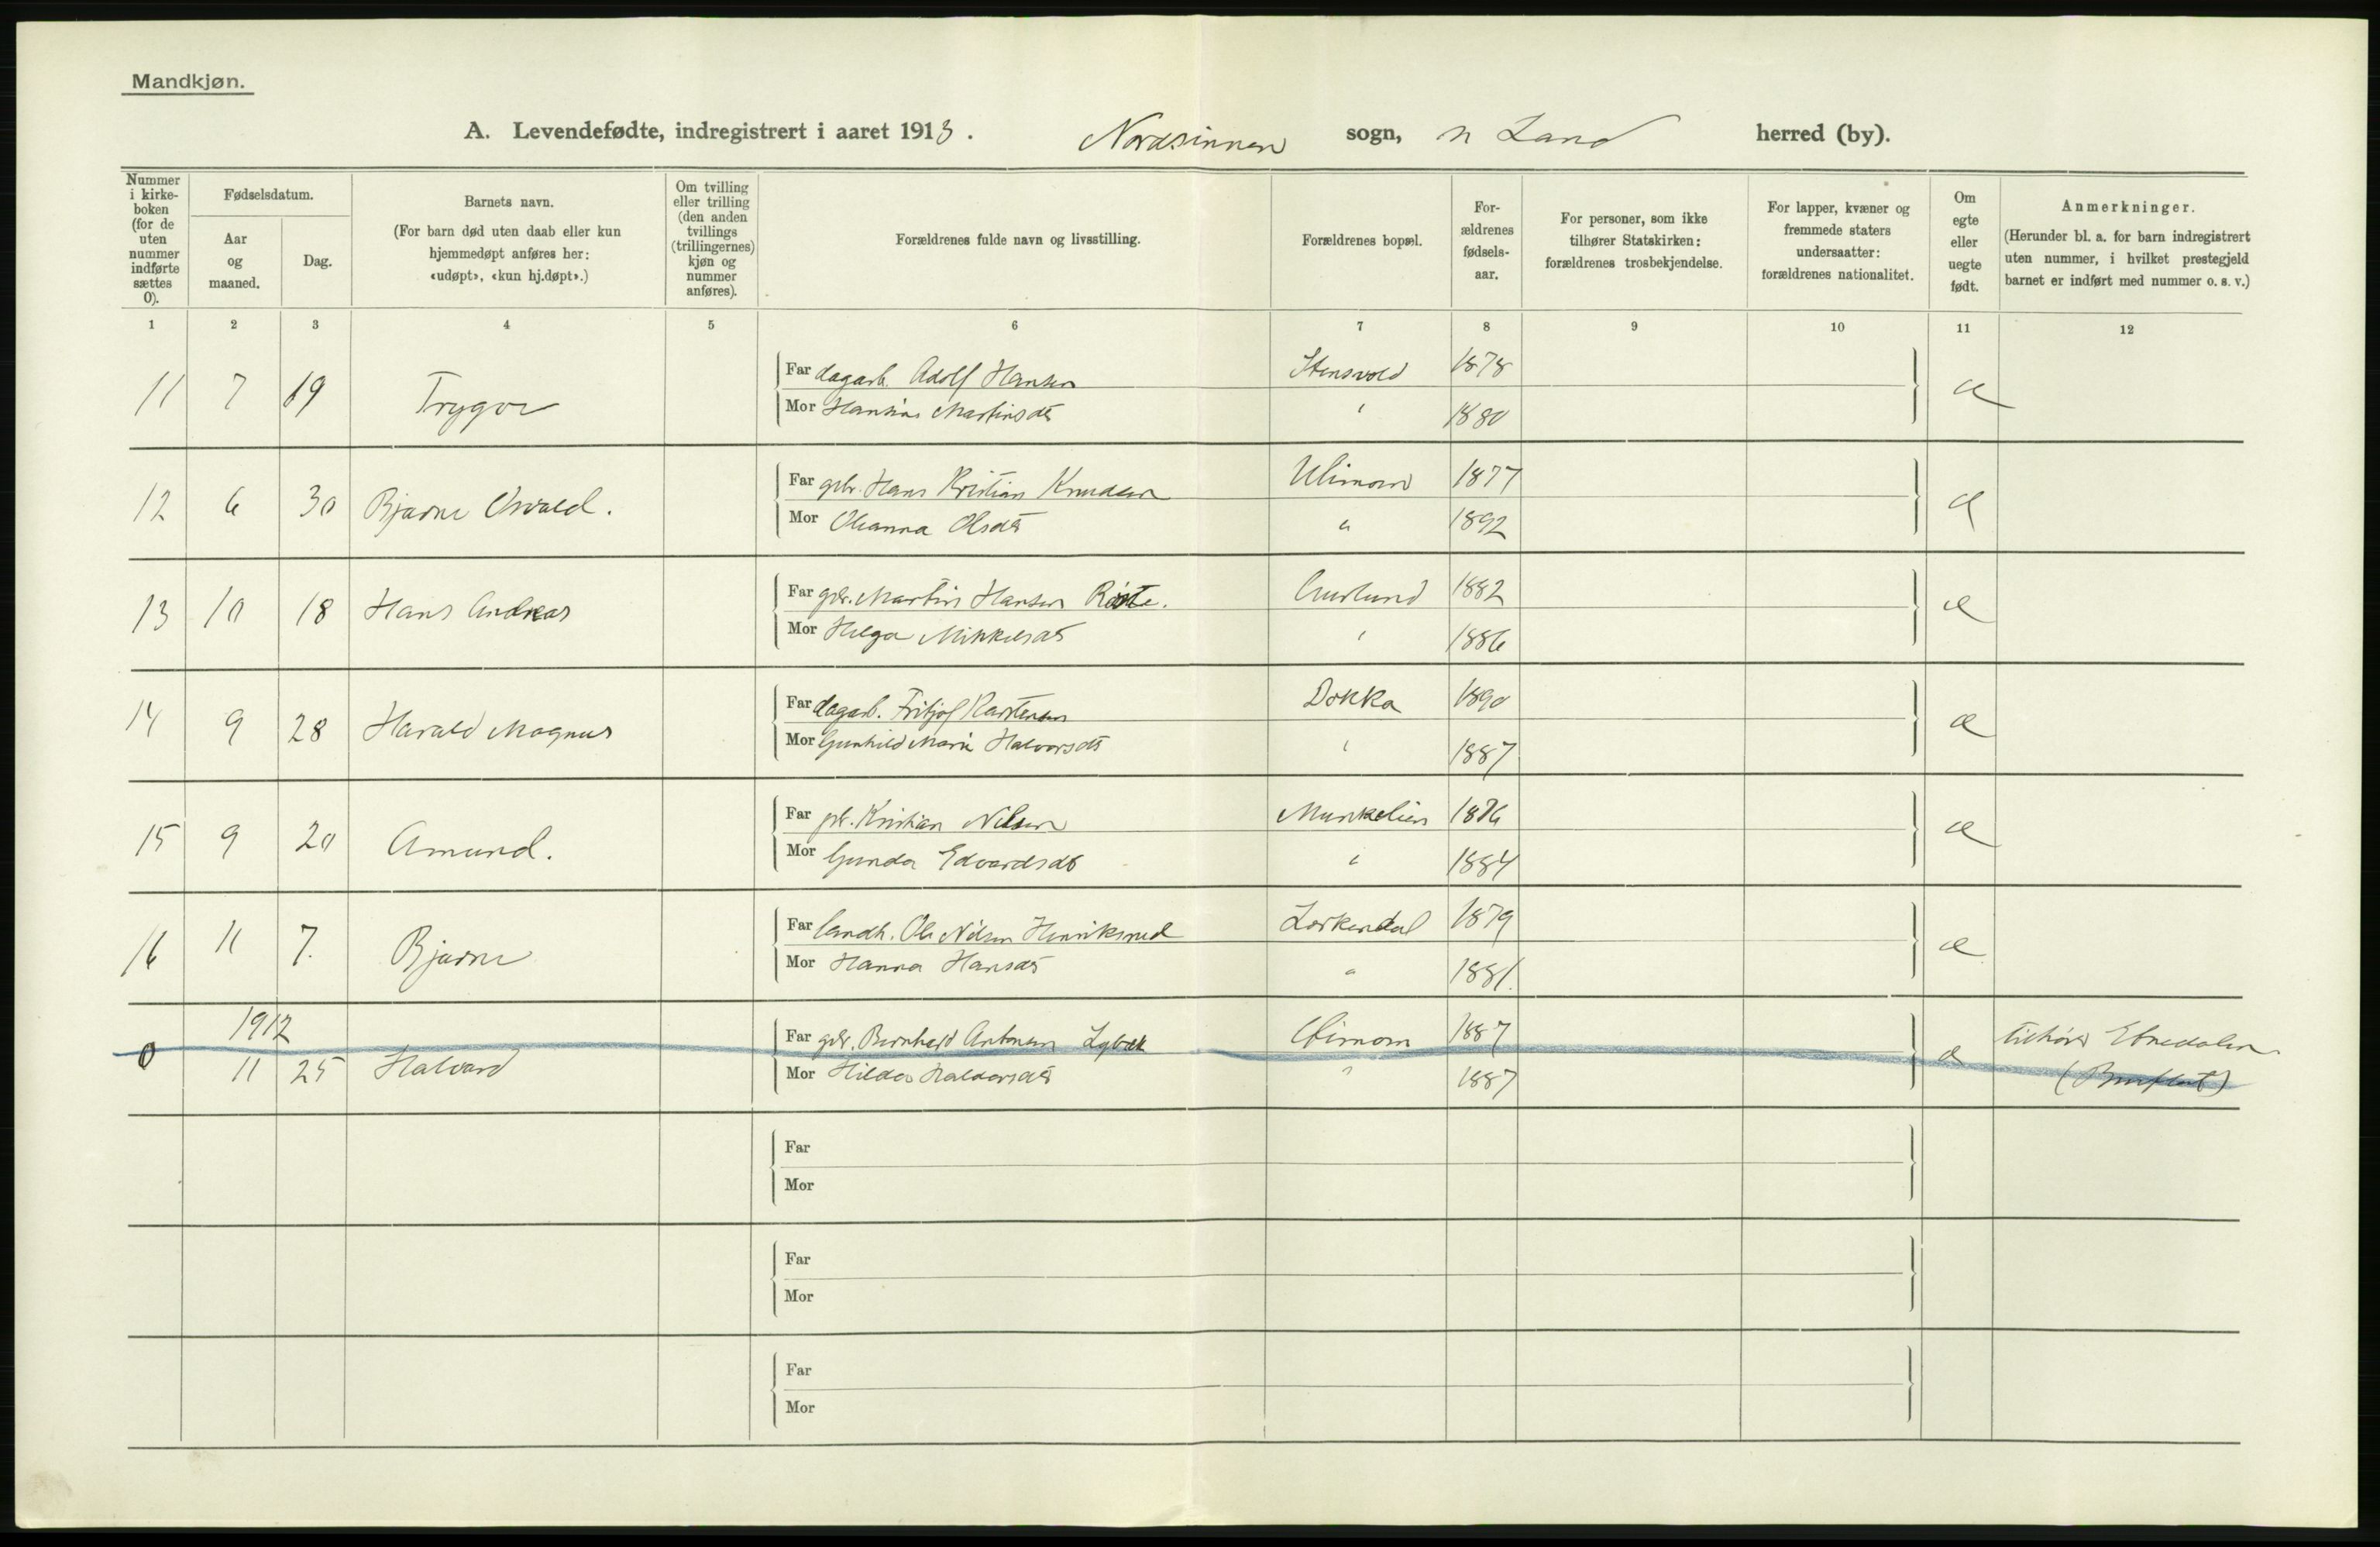 Mandkjøn.
A. Levendefødte, indregistrert i aaret 1913. Nordsinnen sogn, n Land herred (by).
Nummer i kirkeboken (for de uten nummer indførte sættes 0).
Fødselsdatum.
Aar og maaned.
Dag.
Barnets navn.
(For barn død uten daab eller kun hjemmedøpt anføres her: «udøpt», «kun hj.døpt».)
Om tvilling eller trilling (den anden tvillings (trillingernes) kjøn og nummer anføres).
Forældrenes fulde navn og livsstilling.
Forældrenes bopæl.
Forældrenes fødselsaar.
For personer, som ikke tilhører Statskirken: forældrenes trosbekjendelse.
For lapper, kvæner og fremmede staters undersaatter: forældrenes nationalitet.
Om egte eller uegte født.
Anmerkninger.
(Herunder bl. a. for barn indregistrert uten nummer, i hvilket prestegjeld barnet er indført med nummer o. s. v.)
1 2 3 4 5 6 7 8 9 10 11 12
11 7 19 Trygve Far dagarb. Adolf Hansen Stensvold 1878 æ
Mor Hansine Martinsdt " 1880
12 6 30 Bjarne Osvald. Far gbr. Hans Kristian Knudsen Ulimoen 1877 æ
Mor Oleanna Olsdt " 1892
13 10 18 Hans Andreas Far gbr. Martin Hansen Røste. Aurlund 1882 æ
Mor Helga Mikkelsdt " 1886
14 9 28 Harald Magnus Far dagarb. Fritjof Karstensen Dokka 1890 æ
Mor Gunhild Marie Halvorsdt " 1887
15 9 20 Amund. Far Kristian Nilsen Munkelien 1876 æ
Mor Gunda Edvardsdt " 1884
16 11 7. Bjarne Far landh. Ole Nilsen Henriksrud Lørkendal 1879 æ
Mor Hanna Hansdt " 1881.
1912
0 11 25 Halvard Far gbr. Bernhard Antonsen Lybæk 1887 æ tilhører Etnedalen
Mor Hilda Haldorsdt " 1887 (Bruflat)
Far
Mor
Far
Mor
Far
Mor